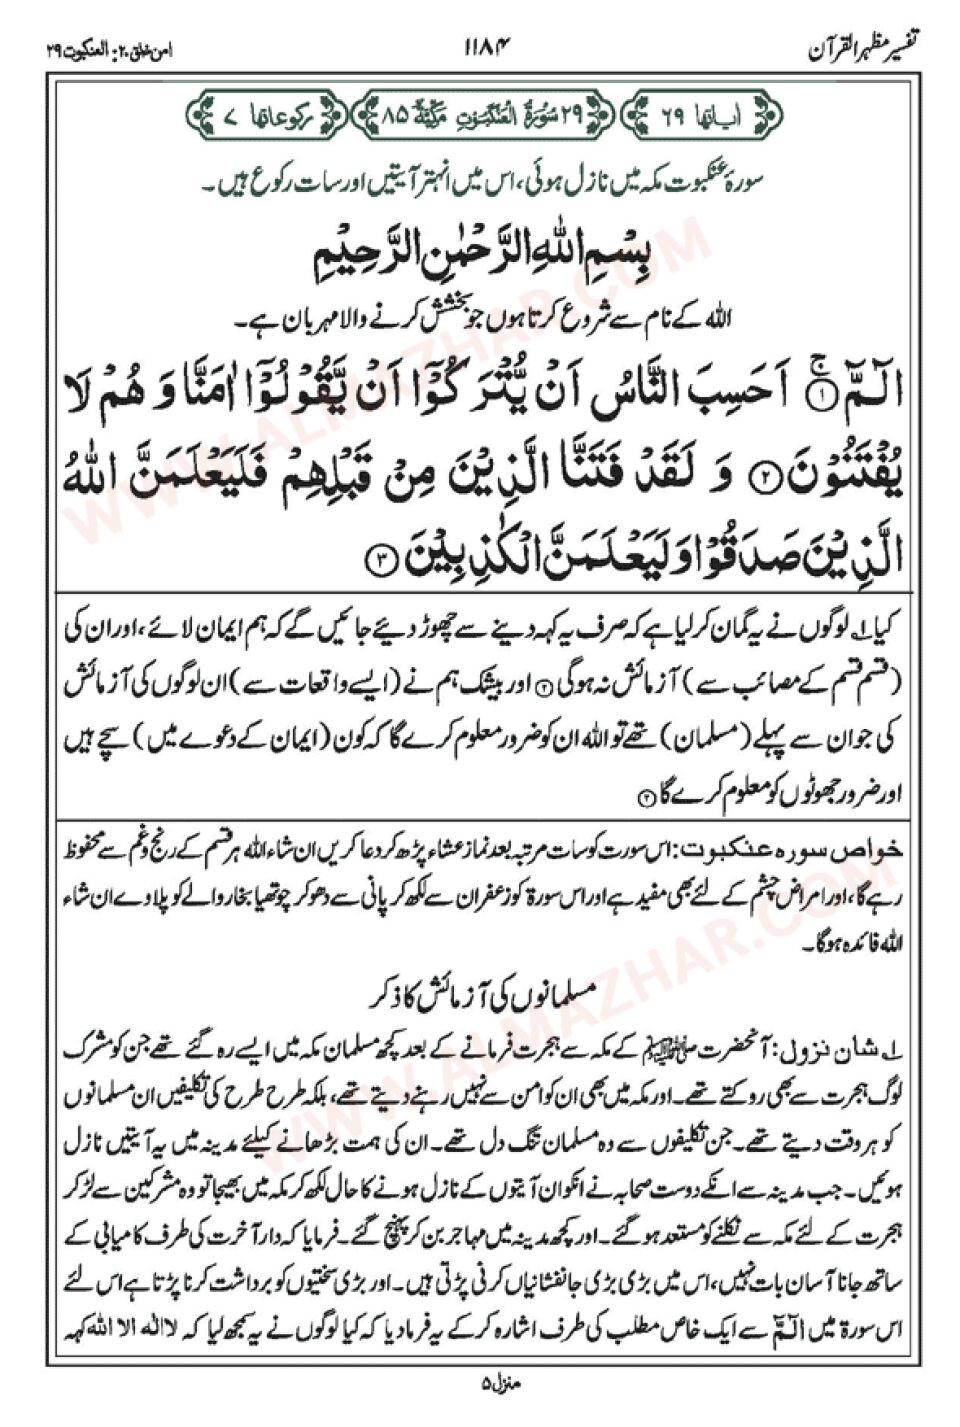 تفسیر مظہر القرآن ۱۱۸۴ امن خلق ۲۰: العنکبوت ۲۹
اٰیاتها ۶۹ ۲۹ سُوْرَةُ الْعَنْكَبُوْتِ مَكِّيَّةٌ ۸۵ رکوعاتها ۷
سورۂ عنکبوت مکہ میں نازل ہوئی، اس میں انہتر آیتیں اور سات رکوع ہیں۔
بِسْمِ اللهِ الرَّحْمٰنِ الرَّحِيْمِ
اللہ کے نام سے شروع کرتا ہوں جو بخشش کرنے والا مہربان ہے۔
الٓـمّٓ ۚ﴿۱﴾ اَحَسِبَ النَّاسُ اَنْ يُّتْرَكُوْٓا اَنْ يَّقُوْلُوْٓا اٰمَنَّا وَ هُمْ لَا
يُفْتَنُوْنَ ﴿۲﴾ وَ لَقَدْ فَتَنَّا الَّذِيْنَ مِنْ قَبْلِهِمْ فَلَيَعْلَمَنَّ اللهُ
الَّذِيْنَ صَدَقُوْا وَ لَيَعْلَمَنَّ الْكٰذِبِيْنَ ﴿۳﴾
کیا ۱؎ لوگوں نے یہ گمان کر لیا ہے کہ صرف یہ کہہ دینے سے چھوڑ دیئے جائیں گے کہ ہم ایمان لائے، اور ان کی
(قسم قسم کے مصائب سے) آزمائش نہ ہوگی ﴿۲﴾ اور بیشک ہم نے (ایسے واقعات سے) ان لوگوں کی آزمائش
کی جو ان سے پہلے (مسلمان) تھے تو اللہ ان کو ضرور معلوم کرے گا کہ کون (ایمان کے دعوے میں) سچے ہیں
اور ضرور جھوٹوں کو معلوم کرے گا ﴿۳﴾
خواص سورہ عنکبوت: اس سورت کو سات مرتبہ بعد نماز عشاء پڑھ کر دعا کریں ان شاء اللہ ہر قسم کے رنج و غم سے محفوظ
رہے گا، اور امراض چشم کے لئے بھی مفید ہے اور اس سورۃ کو زعفران سے لکھ کر پانی سے دھو کر چوتھیا بخار والے کو پلاوے ان شاء
اللہ فائدہ ہوگا۔
مسلمانوں کی آزمائش کا ذکر
۱؎ شان نزول: آنحضرت ﷺ کے مکہ سے ہجرت فرمانے کے بعد کچھ مسلمان مکہ میں ایسے رہ گئے تھے جن کو مشرک
لوگ ہجرت سے بھی روکتے تھے۔ اور مکہ میں بھی ان کو امن سے نہیں رہنے دیتے تھے، بلکہ طرح طرح کی تکلیفیں ان مسلمانوں
کو ہر وقت دیتے تھے۔ جن تکلیفوں سے وہ مسلمان تنگ دل تھے۔ ان کی ہمت بڑھانے کیلئے مدینہ میں یہ آیتیں نازل
ہوئیں۔ جب مدینہ سے انکے دوست صحابہ نے انکو ان آیتوں کے نازل ہونے کا حال لکھ کر مکہ میں بھیجا تو وہ مشرکین سے لڑ کر
ہجرت کے لئے مکہ سے نکلنے کو مستعد ہوگئے۔ اور کچھ مدینہ میں مہاجر بن کر پہنچ گئے۔ فرمایا کہ دار آخرت کی طرف کامیابی کے
ساتھ جانا آسان بات نہیں، اس میں بڑی بڑی جانفشانیاں کرنی پڑتی ہیں۔ اور بڑی سختیوں کو برداشت کرنا پڑتا ہے اس لئے
اس سورۃ میں الٓـمّٓ سے ایک خاص مطلب کی طرف اشارہ کر کے یہ فرمادیا کہ کیا لوگوں نے یہ سمجھ لیا کہ لا الٰه الا الله کہہ
منزل ۵
WWW.ALMAZHAR.COM
WWW.ALMAZHAR.COM